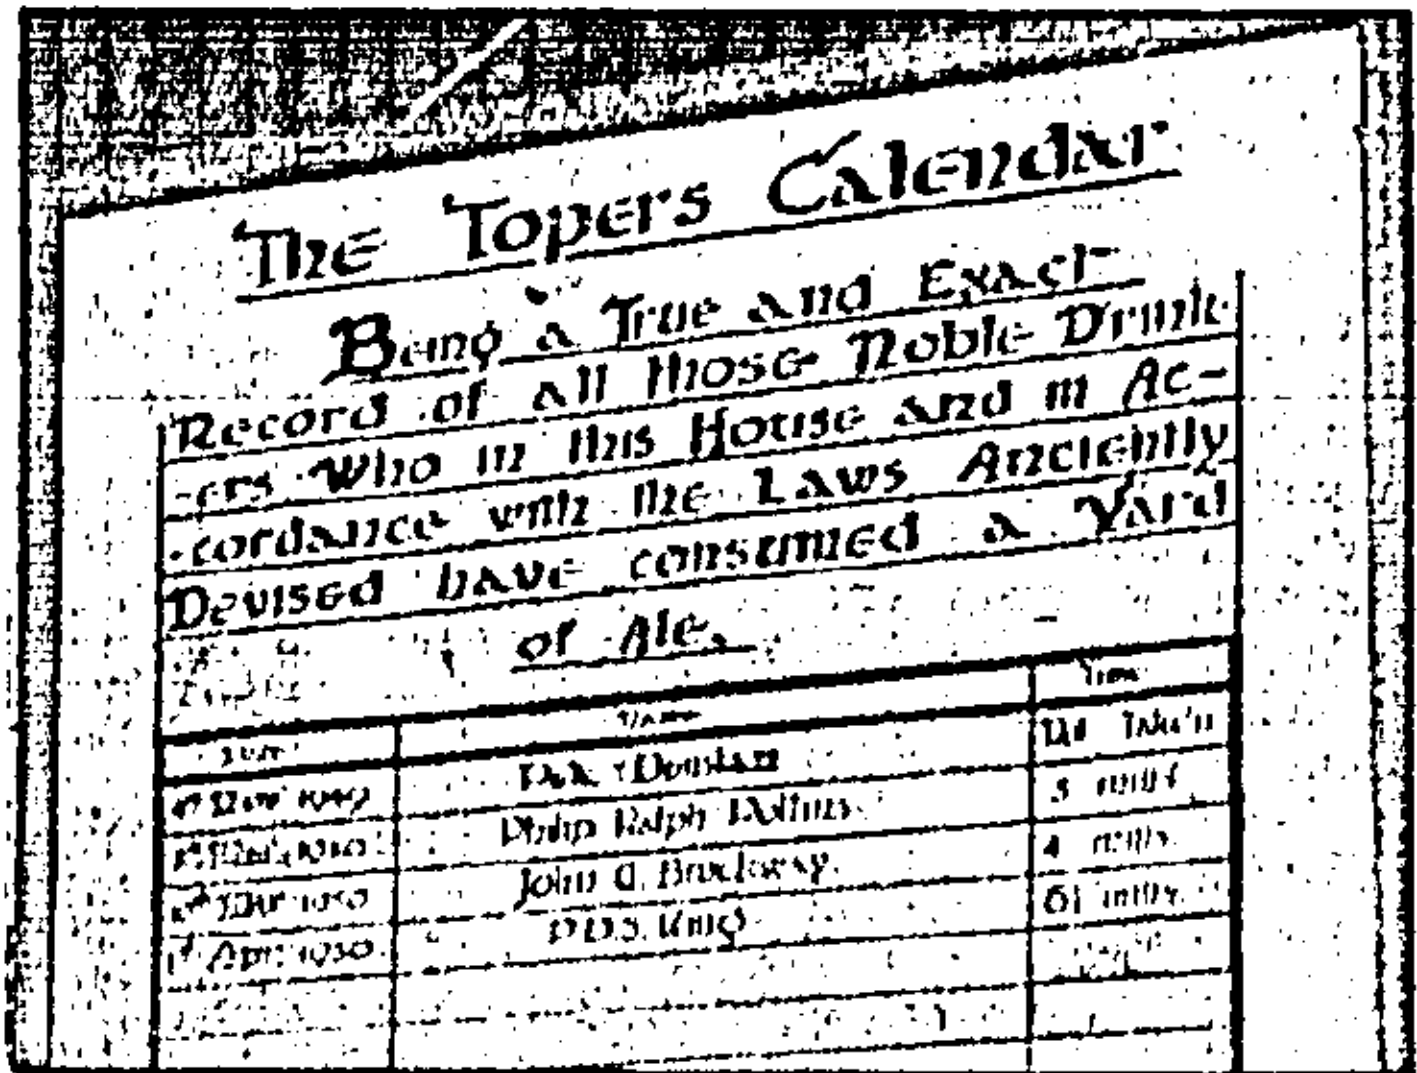 The Topers Calendar
Being a True and Exact
Record of all those Noble Drink-
-ers Who in this House and in Ac-
-cordance with the Laws Anciently
Devised have consumed a Yard
of Ale.
Name Time
Nov 1949
Philip Ralph 3 mins
1950 John 4 mins.
1st Apr: 1950 King 6½ mins.